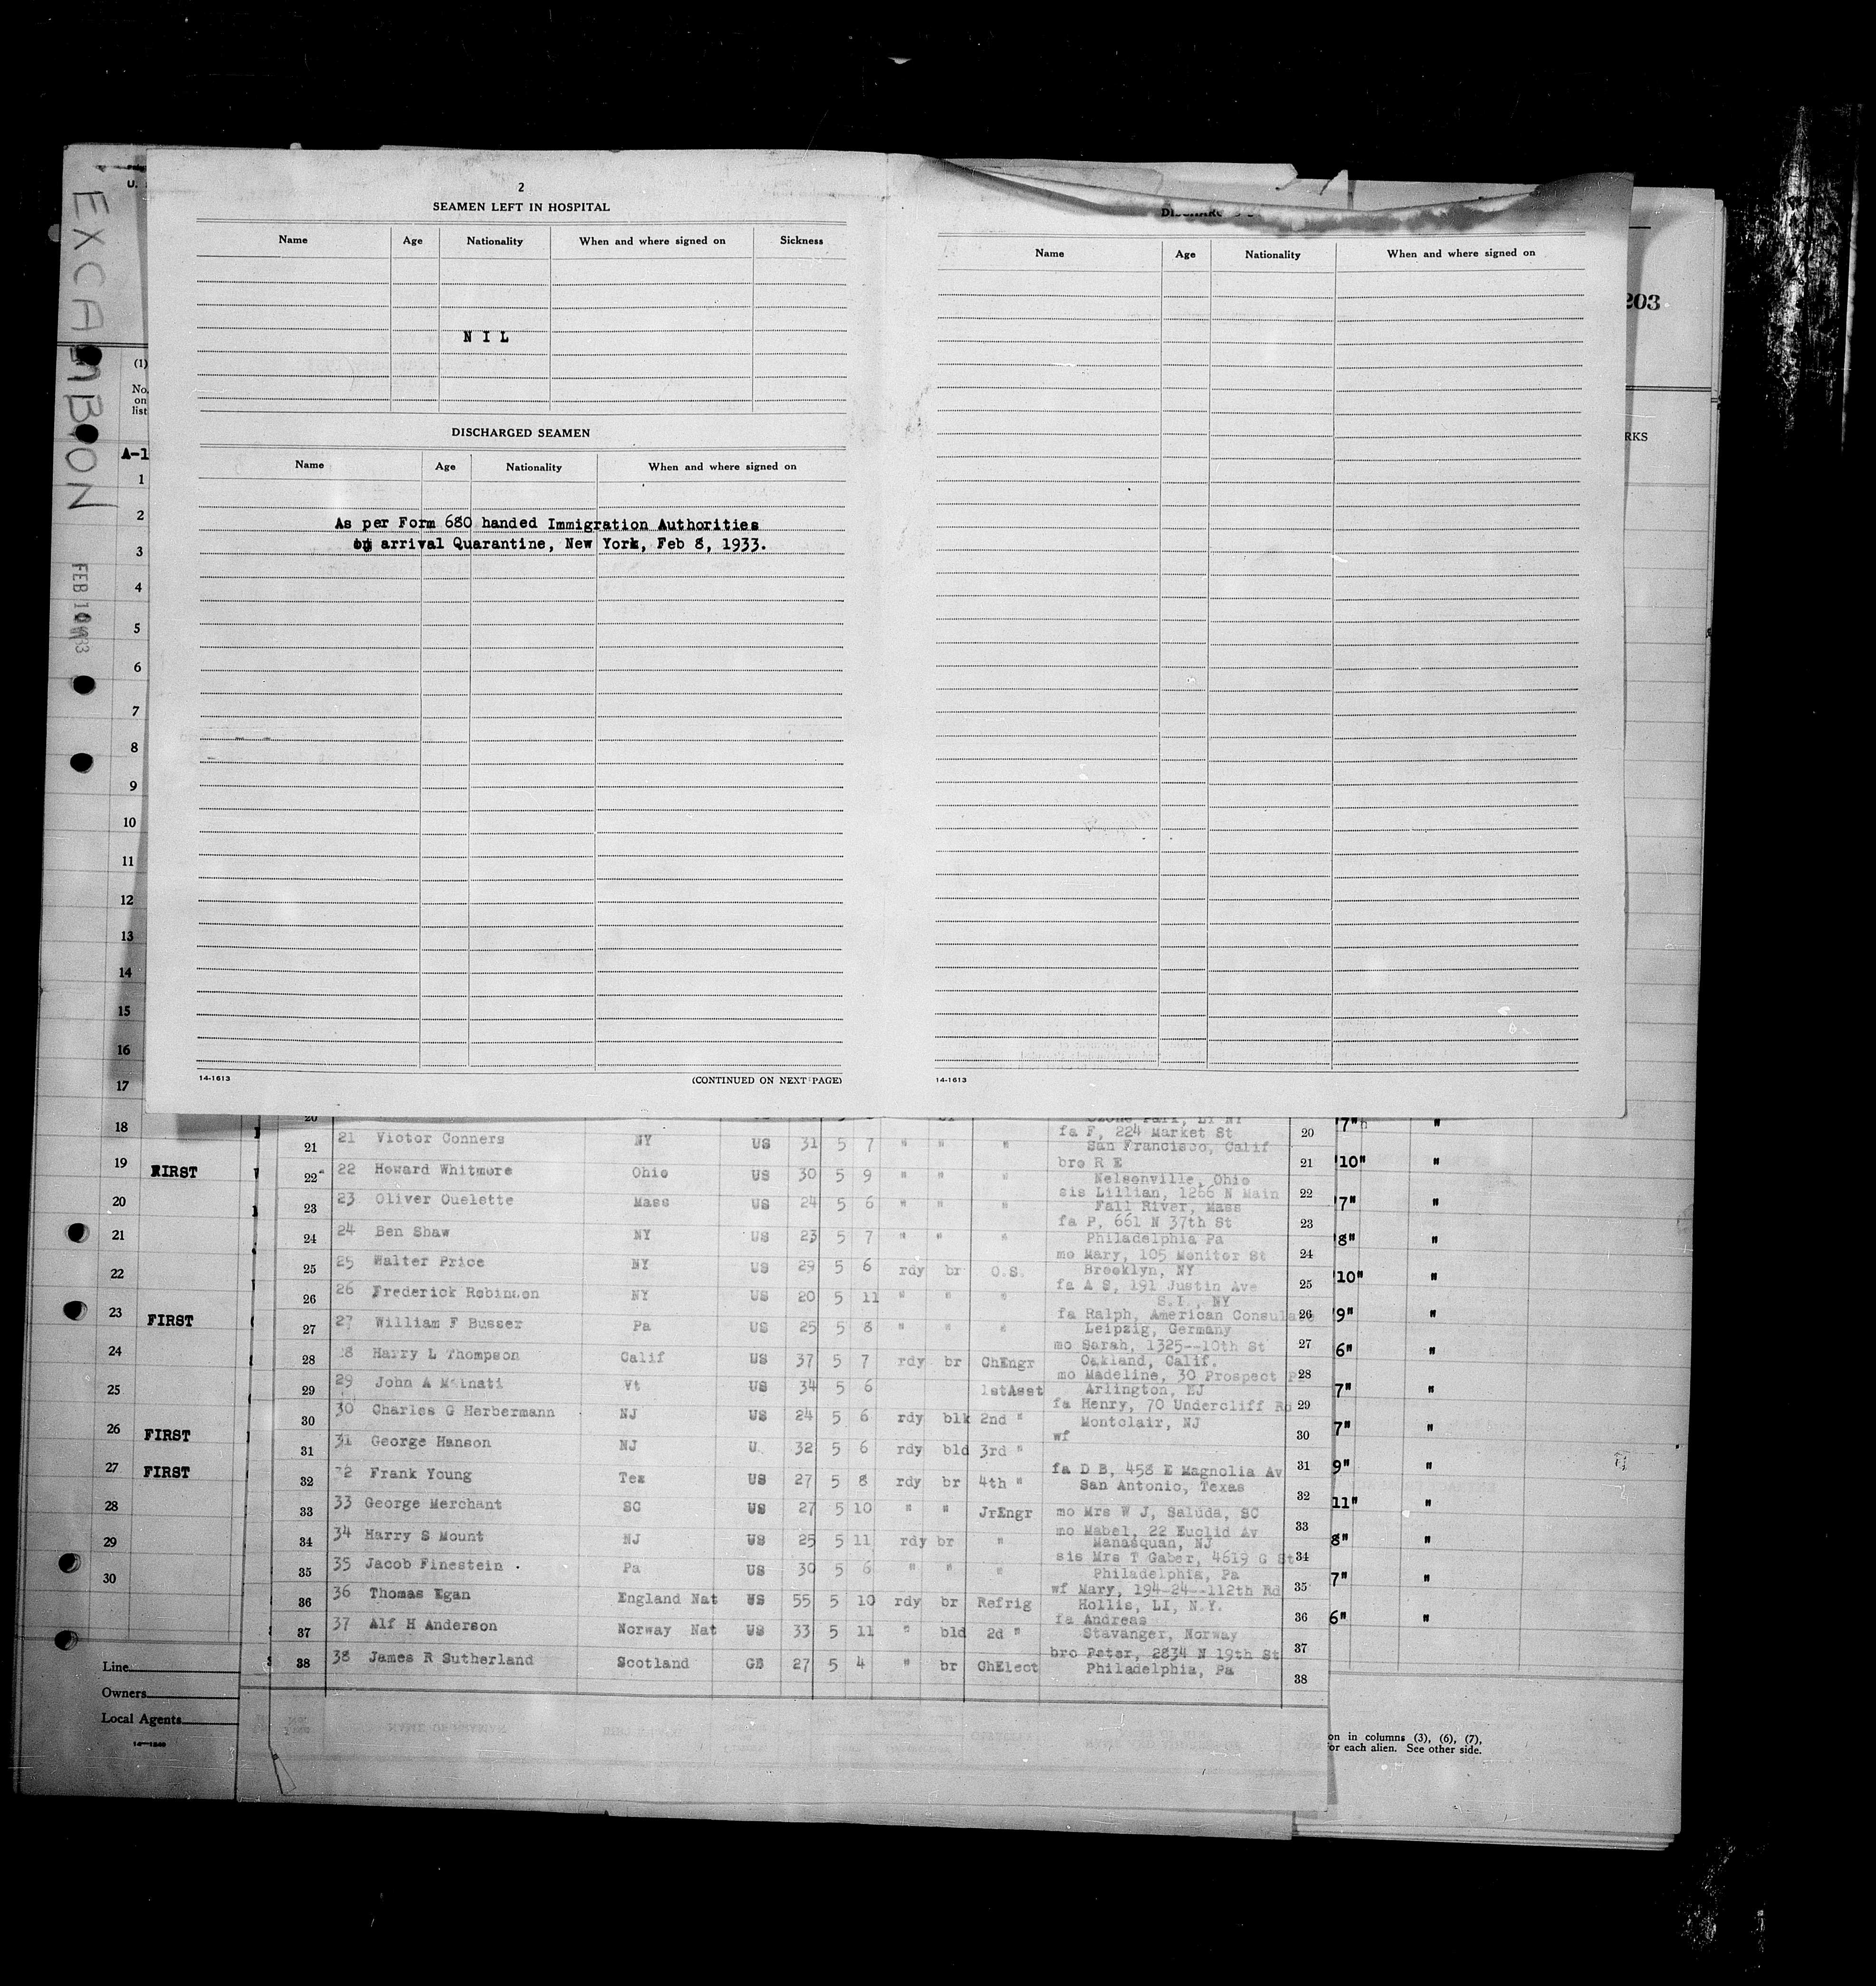 EXCAMBION
FEB 10 1933
U.
(1)
No.
on
list
A-1
1
2
3
4
5
6
7
8
9
10
11
12
13
14
15
16
17
18
19 FIRST
20
21
22
23 FIRST
24
25
26 FIRST
27 FIRST
28
29
30
Line
Owners
Local Agents
14—1240
2
SEAMEN LEFT IN HOSPITAL
Name Age Nationality When and where signed on Sickness
N I L
DISCHARGED SEAMEN
Name Age Nationality When and where signed on
As per Form 680 handed Immigration Authorities
on arrival Quarantine, New York, Feb 8, 1933.
14-1613 (CONTINUED ON NEXT PAGE)
Name Age Nationality When and where signed on
14-1613
203
RKS
20 Ozone Park, LI NY 20 7" "
21 21 Victor Conners NY US 31 5 7 " " " fa F, 224 Market St
San Francisco, Calif 21 10" "
22 22 Howard Whitmore Ohio US 30 5 9 " " " bro R E
Nelsonville, Ohio 22
23 23 Oliver Ouelette Mass US 24 5 6 " " " sis Lillian, 1266 N Main
Fall River, Mass 7" "
24 24 Ben Shaw NY US 23 5 7 " " " fa P, 661 N 37th St 23
Philadelphia Pa 8" "
25 25 Walter Price NY US 29 5 6 rdy br O.S. mo Mary, 105 Monitor St 24
Brooklyn, NY 10" "
26 26 Frederick Robinson NY US 20 5 11 " " " fa A S, 191 Justin Ave 25
S.I., NY
27 27 William F Busser Pa US 25 5 8 " " " fa Ralph, American Consul 26 9" "
Leipzig, Germany
28 28 Harry L Thompson Calif US 37 5 7 rdy br ChEngr mo Sarah, 1325--10th St 27 6" "
Oakland, Calif.
29 29 John A Molnati Vt US 34 5 6 1stAsst mo Madeline, 30 Prospect 28
Arlington, NJ 7" "
30 30 Charles G Herbermann NJ US 24 5 6 rdy blk 2nd " fa Henry, 70 Undercliff Rd 29
Montclair, NJ 7" "
31 31 George Hanson NJ U. 32 5 6 rdy bld 3rd " wf 30
32 32 Frank Young Tex US 27 5 8 rdy br 4th " fa D B, 458 E Magnolia Av 31 9" "
San Antonio, Texas
33 33 George Merchant SC US 27 5 10 " " JrEngr mo Mrs W J, Saluda, SC 32 11" "
34 34 Harry S Mount NJ US 25 5 11 rdy br " mo Mabel, 22 Euclid Av 33
Manasquan, NJ 8" "
35 35 Jacob Finestein Pa US 30 5 6 " " " sis Mrs T Gaber, 4619 G St 34
Philadelphia, Pa 7" "
36 36 Thomas Egan England Nat US 55 5 10 rdy br Refrig wf Mary, 194-24--112th Rd 35
Hollis, LI, N.Y.
37 37 Alf H Anderson Norway Nat US 33 5 11 " bld 2d " fa Andreas 36 6" "
Stavanger, Norway
38 38 James R Sutherland Scotland GB 27 5 4 " br ChElect bro Peter, 2834 N 19th St 37
Philadelphia, Pa 38
on in columns (3), (6), (7),
or each alien. See other side.